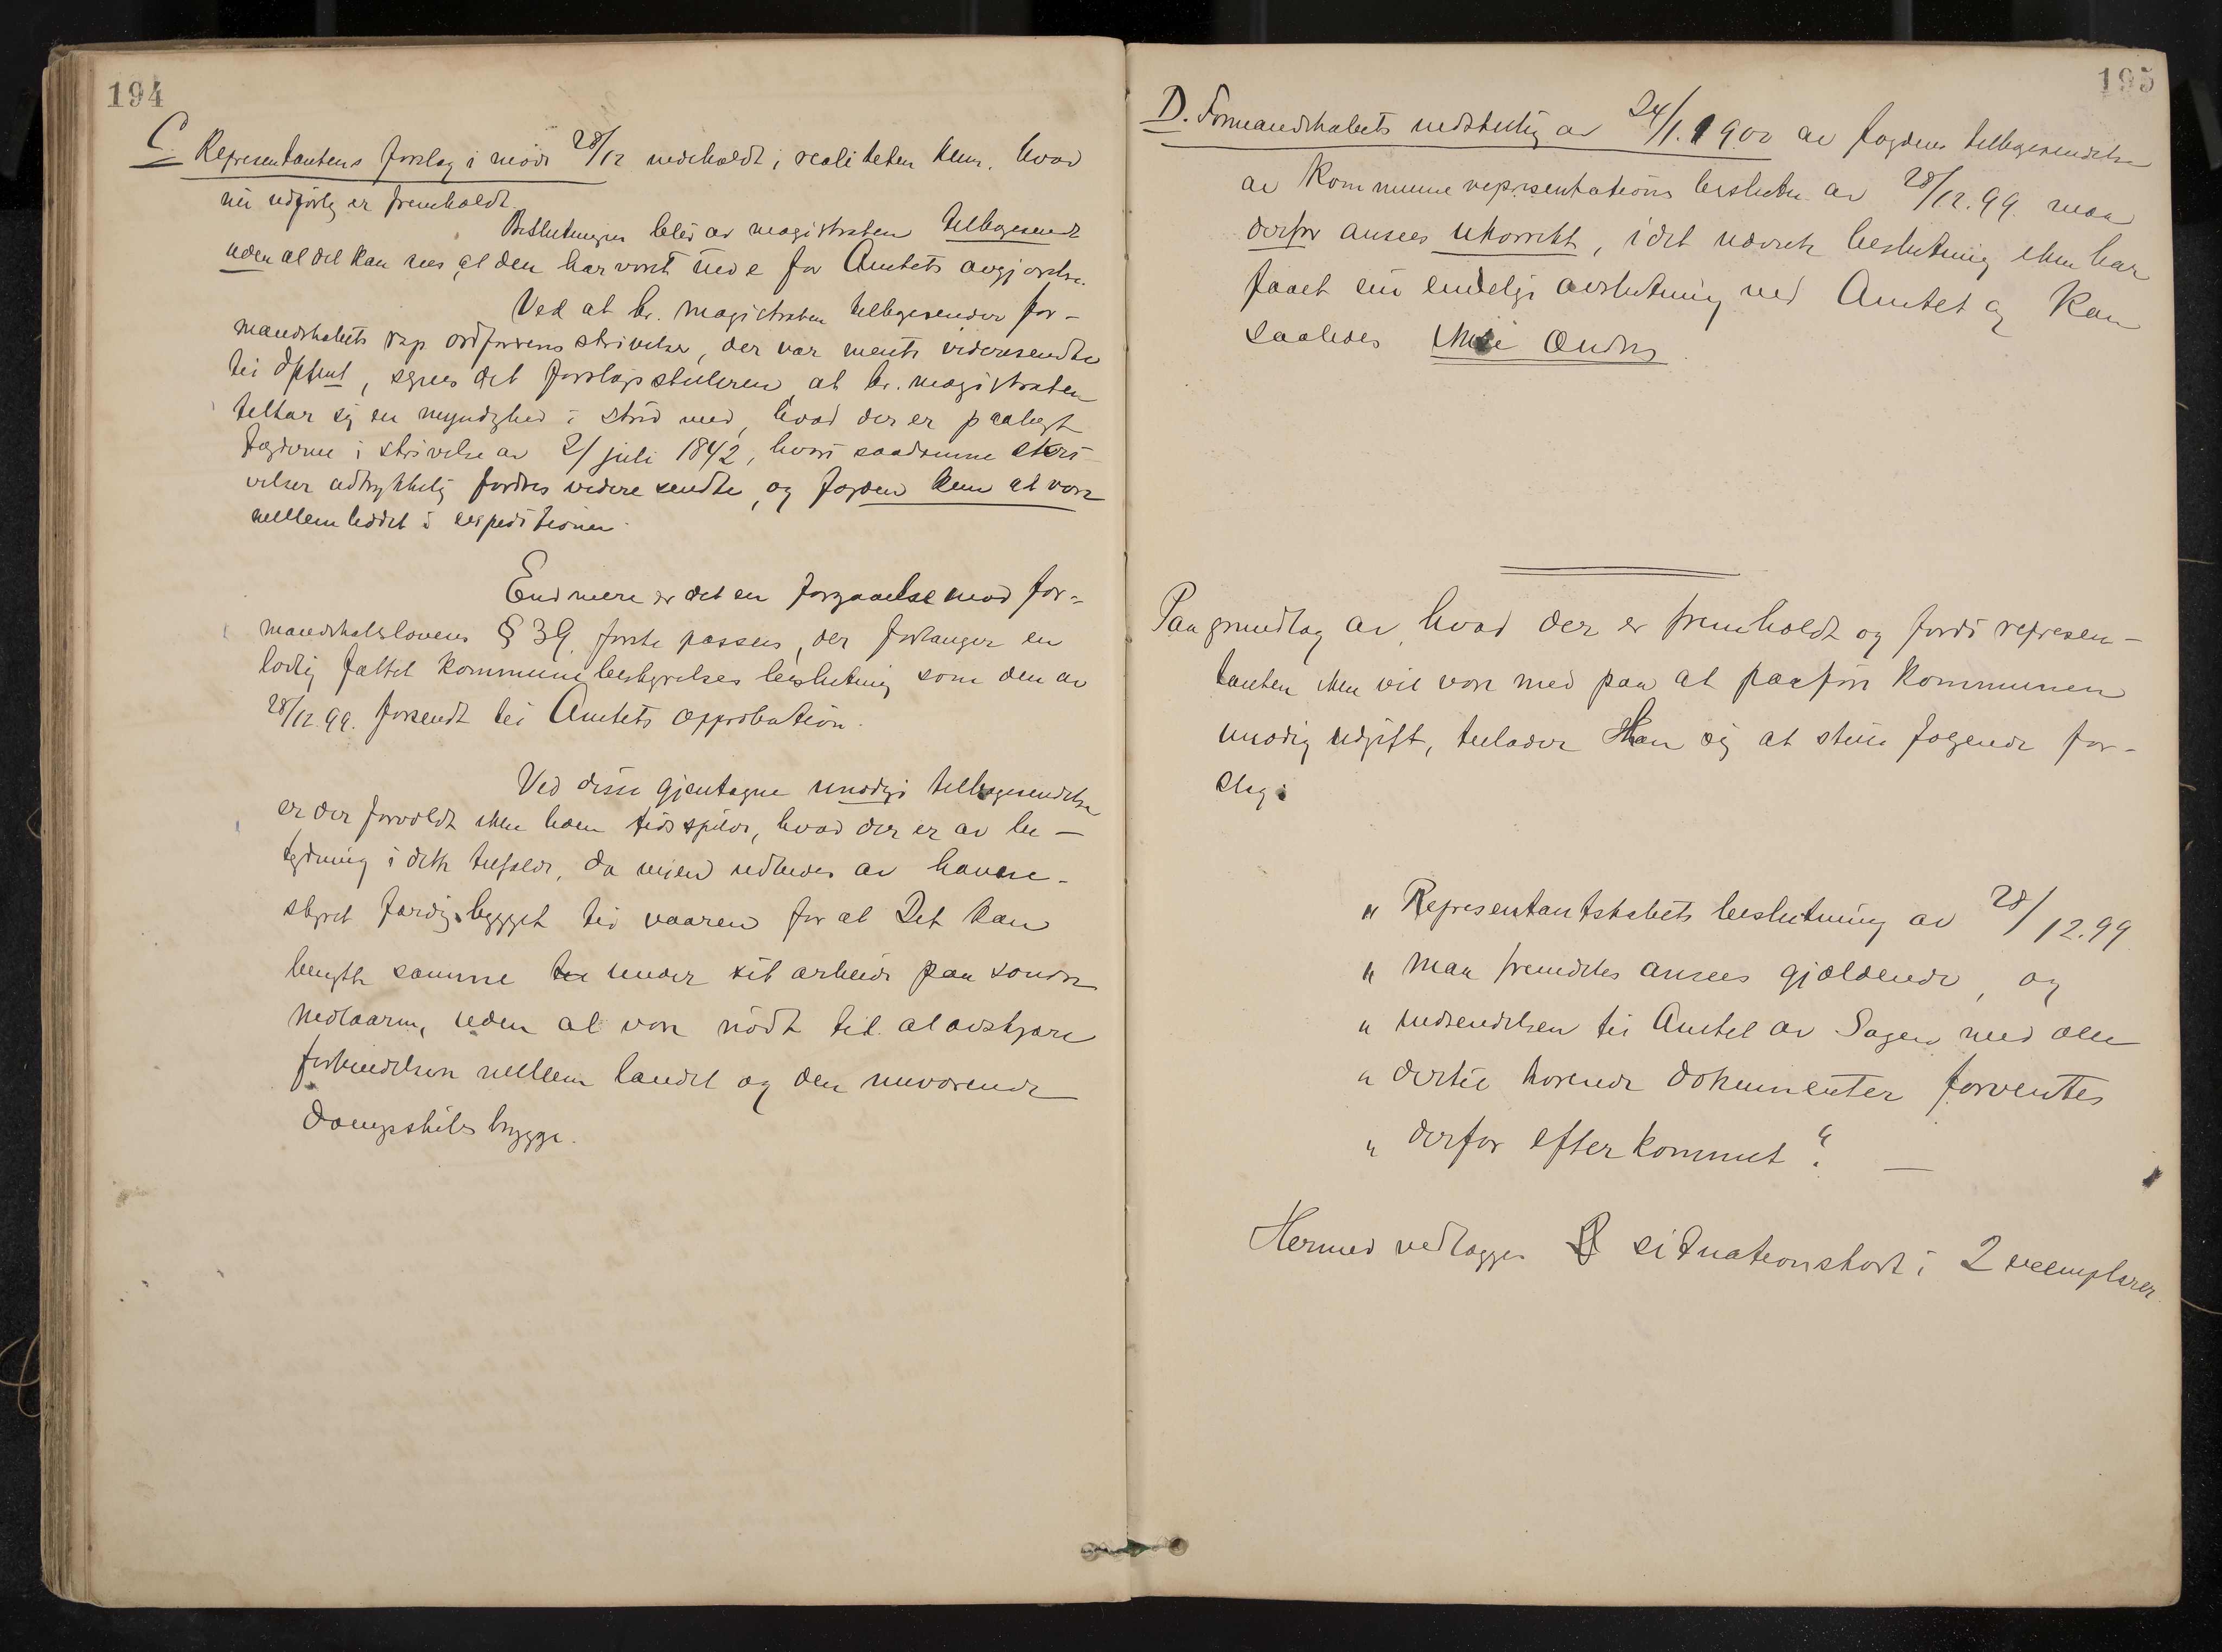 194
C. Representantens forslag i möde 28/12 indeholdt i realiteten kun hvad
nu udførlig er fremholdt.
Beslutningen blev av magistraten tilbagesendt
uden at det kan sees at den har været inde for Amtets avgjørelse.
Ved at hr. magistraten tilbagesender for-
mandskabets resp ordførerens skrivelse, der var ment videresendte
til Amtet, synes det forslagsstilleren, at hr. magistraten
tiltar sig en myndighed i strid med, hvad der er paalagt
fogderne i skrivelse av 2/ juli 1842, hvori saadanne skri-
velser udtrykkelig fordres videre sendte, og fogden kun at være
mellemleddet i expeditionen.
End mere er det en forgaaelse mod for-
mandskabslovens § 39. første passus, der forlanger en
lovlig fattet kommunebestyrelses beslutning som den av
28/12.99. forsendt til Amtets approbation.
Ved disse gjentagne unødige tilbagesendelser
er der forvoldt ikke liden tidsspilde, hvad der er av be-
tydning i dette tilfælde, da veien udbedes av havne-
styret færdig bygget til vaaren for at Det kan
benytte samme under sit arbeide paa søndre
Medlaaren, uden at være nödt til at avskjære
forbindelsen mellem landet og den nuværende
dampskibsbrygge.
195
D. Formandskabets indstilling av 24/1.1900 av fogdens tilbagesendelse
av Kommunerepresentations beslutn. av 28/12.99. maa
derfor ansees ukorrekt, idet nævnte beslutning ikke har
faaet sin endelige avslutning ved Amtet og kan
saaledes ikke ændres.
Paa grundlag av, hvad der er fremholdt og fordi represen-
tanten ikke vil være med paa at paaføre Kommunen
unødig udgift, tillader Han sig at stille følgende for-
slag:
" Representantskabets beslutning av 28/12.99
" maa fremdeles ansees gjældende, og
" indsendelsen til Amtet av Sagen med alle
" dertil hørende dokumenter forventes
" derfor efterkommet". —
Hermed vedlægges situationskart i 2 exemplarer.